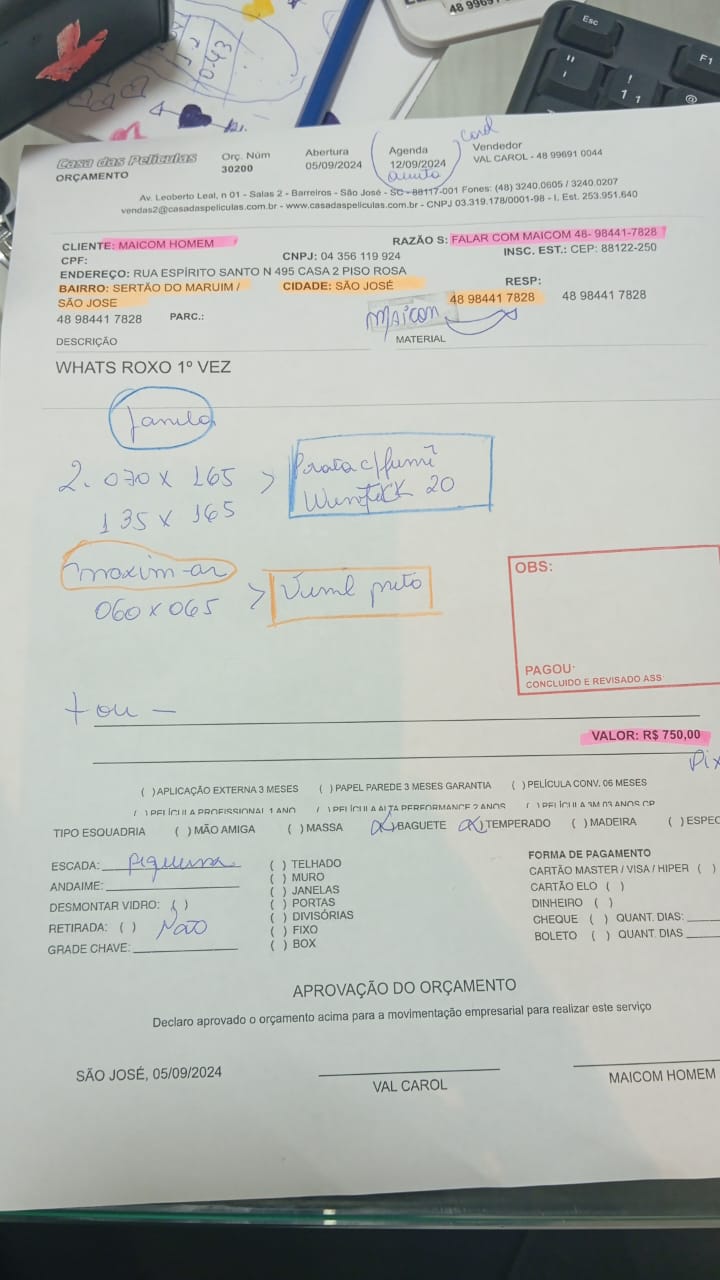 48 9969
Esc
F1
! 1 1
@
0.43
Casa das Películas
ORÇAMENTO
Orç. Núm
30200
Abertura
05/09/2024
Agenda
12/09/2024
Carol
Vendedor
VAL CAROL - 48 99691 0044
Av. Leoberto Leal, n 01 - Salas 2 - Barreiros - São José - SC - 88117-001 Fones: (48) 3240.0605 / 3240.0207
vendas2@casadaspeliculas.com.br - www.casadaspeliculas.com.br - CNPJ 03.319.178/0001-98 - I. Est. 253.951.640
CLIENTE: MAICOM HOMEM
RAZÃO S: FALAR COM MAICOM 48- 98441-7828
CPF:
CNPJ: 04 356 119 924
INSC. EST.: CEP: 88122-250
ENDEREÇO: RUA ESPÍRITO SANTO N 495 CASA 2 PISO ROSA
BAIRRO: SERTÃO DO MARUIM /
SÃO JOSE
CIDADE: SÃO JOSÉ
RESP:
48 98441 7828
PARC.:
MAICON
48 98441 7828
48 98441 7828
DESCRIÇÃO
MATERIAL
WHATS ROXO 1º VEZ
Janela
2. 070 x 165 > Prata c/fumê
135 x 165
20
maxim-ar
060 x 065 > Vinil preto
OBS:
PAGOU:
CONCLUIDO E REVISADO ASS
VALOR: R$ 750,00
Pix
( )APLICAÇÃO EXTERNA 3 MESES ( ) PAPEL PAREDE 3 MESES GARANTIA ( ) PELÍCULA CONV. 06 MESES
( ) PELÍCULA PROFISSIONAL 1 ANO ( ) PELÍCULA ALTA PERFORMANCE 2 ANOS ( ) PELÍCULA 3M 03 ANOS CP
TIPO ESQUADRIA ( ) MÃO AMIGA ( ) MASSA (x)BAGUETE (x)TEMPERADO ( ) MADEIRA ( ) ESPEC
ESCADA: pequena
ANDAIME:
DESMONTAR VIDRO: ( )
RETIRADA: ( ) Não
GRADE CHAVE:
( ) TELHADO
( ) MURO
( ) JANELAS
( ) PORTAS
( ) DIVISÓRIAS
( ) FIXO
( ) BOX
FORMA DE PAGAMENTO
CARTÃO MASTER / VISA / HIPER ( )
CARTÃO ELO ( )
DINHEIRO ( )
CHEQUE ( ) QUANT. DIAS:
BOLETO ( ) QUANT. DIAS
APROVAÇÃO DO ORÇAMENTO
Declaro aprovado o orçamento acima para a movimentação empresarial para realizar este serviço
SÃO JOSÉ, 05/09/2024
VAL CAROL
MAICOM HOMEM